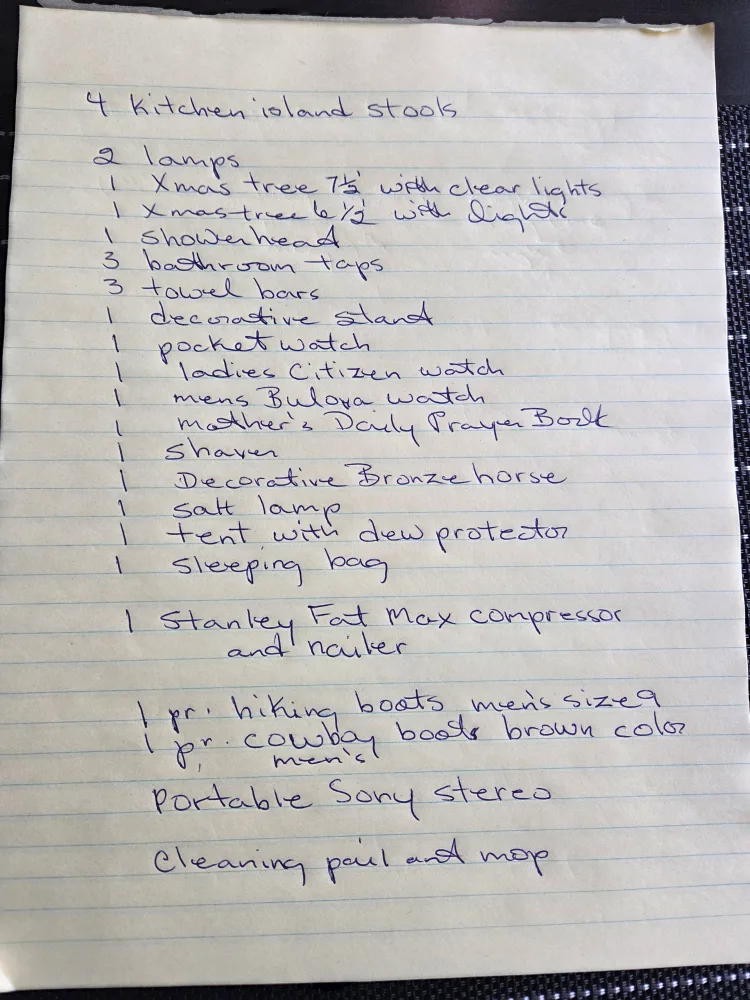 4 Kitchen island stools
2 lamps
1 Xmas tree 7½' with clear lights
1 Xmas tree 6 1/2' with lights
1 showerhead
3 bathroom taps
3 towel bars
1 decorative stand
1 pocket watch
1 ladies Citizen watch
1 mens Bulova watch
1 mother's Daily Prayer Book
1 shaver
1 Decorative Bronze horse
1 salt lamp
1 tent with dew protector
1 sleeping bag
1 Stanley Fat Max compressor
and nailer
1 pr. hiking boots men's size 9
1 pr. cowboy boots brown color
men's
Portable Sony stereo
Cleaning pail and mop